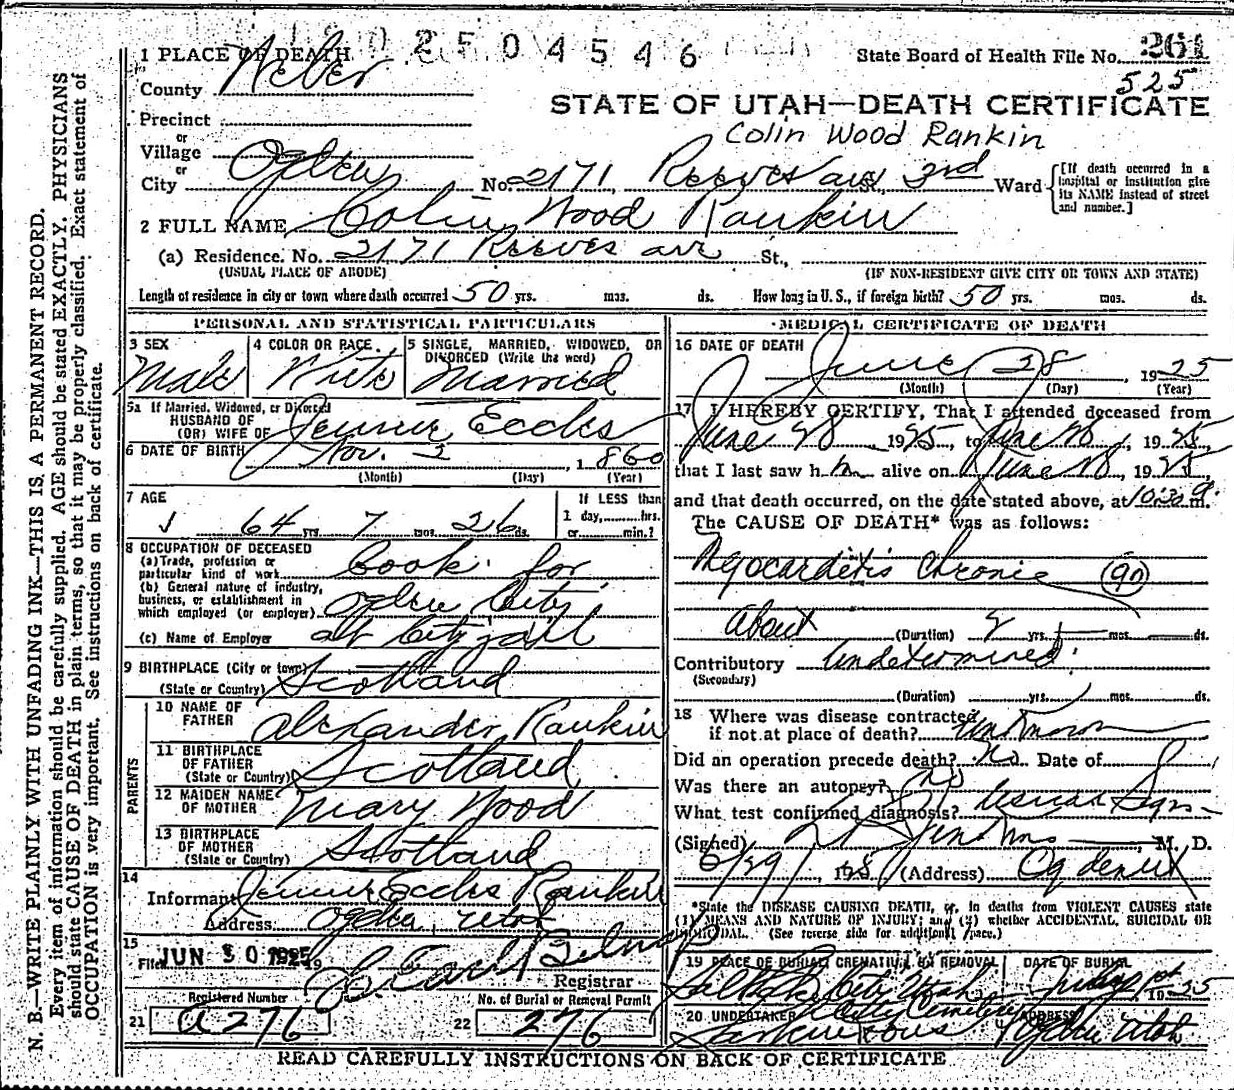 2504546
State Board of Health File No. 261
525
1 PLACE OF DEATH
County Weber
STATE OF UTAH—DEATH CERTIFICATE
Colin Wood Rankin
Precinct
or
Village
or
City Ogden No. 2171 Reeves ave St., 3rd Ward
[If death occurred in a hospital or institution give its NAME instead of street and number.]
2 FULL NAME Colin Wood Rankin
(a) Residence. No. 2171 Reeves ave St.,
(USUAL PLACE OF ABODE) (IF NON-RESIDENT GIVE CITY OR TOWN AND STATE)
Length of residence in city or town where death occurred 50 yrs. mos. ds. How long in U. S., if foreign birth? 50 yrs. mos. ds.
N. B.—WRITE PLAINLY WITH UNFADING INK—THIS IS A PERMANENT RECORD.
Every item of information should be carefully supplied. AGE should be stated EXACTLY. PHYSICIANS
should state CAUSE OF DEATH in plain terms, so that it may be properly classified. Exact statement of
OCCUPATION is very important. See instructions on back of certificate.
PERSONAL AND STATISTICAL PARTICULARS
3 SEX
Male
4 COLOR OR RACE
White
5 SINGLE, MARRIED, WIDOWED, OR
DIVORCED (Write the word)
Married
5a If Married, Widowed, or Divorced
HUSBAND OF
(OR) WIFE OF Eccles
6 DATE OF BIRTH Nov. 2, 1860
(Month) (Day) (Year)
7 AGE
64 yrs. 7 mos. 26 ds.
If LESS than
1 day, hrs.
or min.?
8 OCCUPATION OF DECEASED
(a) Trade, profession or
particular kind of work Cook for
(b) General nature of industry,
business, or establishment in
which employed (or employer) Ogden City
(c) Name of Employer at City jail
9 BIRTHPLACE (City or town)
(State or Country) Scotland
PARENTS
10 NAME OF
FATHER Alexander Rankin
11 BIRTHPLACE
OF FATHER
(State or Country) Scotland
12 MAIDEN NAME
OF MOTHER Mary Wood
13 BIRTHPLACE
OF MOTHER
(State or Country) Scotland
14
Informant Eccles Rankin
Address Ogden Utah
15
Filed JUN 30 1925 19
Registrar
Registered Number
21 a276
No. of Burial or Removal Permit
22 276
MEDICAL CERTIFICATE OF DEATH
16 DATE OF DEATH
June 28, 1925
(Month) (Day) (Year)
17 I HEREBY CERTIFY, That I attended deceased from
June 28, 1925, to June 28, 1925,
that I last saw h im alive on June 28, 1925,
and that death occurred, on the date stated above, at 10:30 m.
The CAUSE OF DEATH* was as follows:
Myocarditis Chronic (90)
About (Duration) 2 yrs. mos. ds.
Contributory Undetermined
(Secondary)
(Duration) yrs. mos. ds.
18 Where was disease contracted
if not at place of death? Unknown
Did an operation precede death? No Date of
Was there an autopsy? No
What test confirmed diagnosis? Signs
(Signed) M. D.
6/29, (Address) Ogden Ut
*State the DISEASE CAUSING DEATH, or, in deaths from VIOLENT CAUSES state
(1) MEANS AND NATURE OF INJURY; and (2) whether ACCIDENTAL, SUICIDAL OR
HOMICIDAL. (See reverse side for additional space.)
19 PLACE OF BURIAL, CREMATION, OR REMOVAL
Salt Lake City Utah
City Cemetery
DATE OF BURIAL
July 1st 1925
20 UNDERTAKER
Larkin & Sons
ADDRESS
Ogden Utah
READ CAREFULLY INSTRUCTIONS ON BACK OF CERTIFICATE